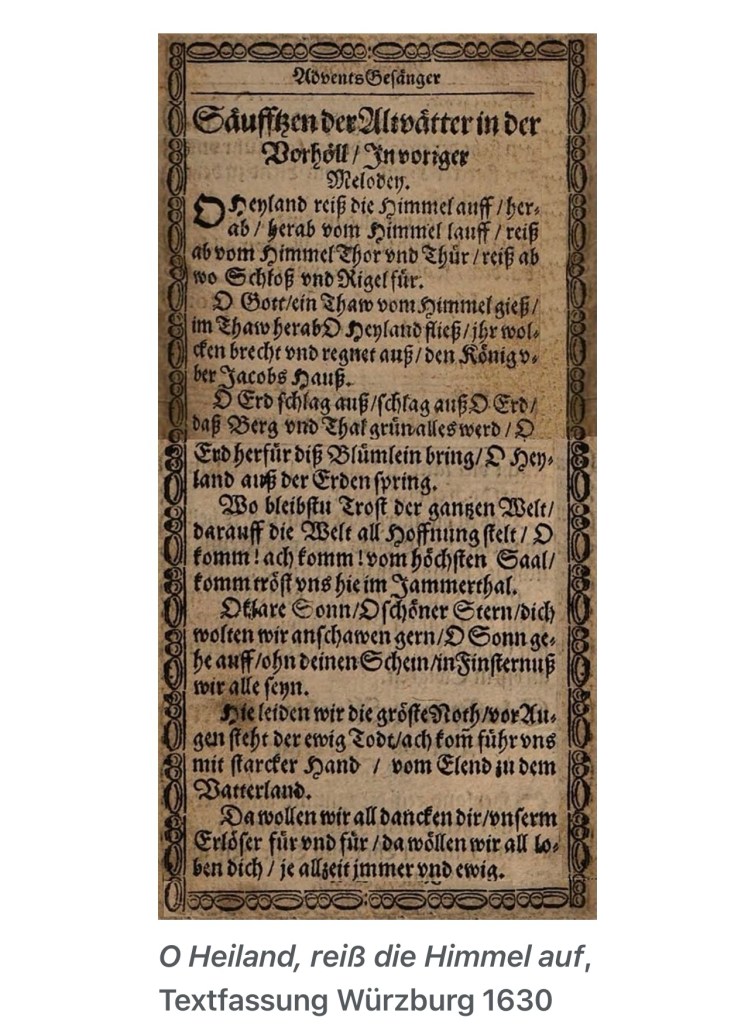 AdventsGesänger
Säufftzen der Altvätter in der
Vorhöll / In voriger
Melodey.
O Heyland reiß die Himmel auff / her⸗
ab / herab vom Himmel lauff / reiß
ab vom Himmel Thor vnd Thür / reiß ab
wo Schloß vnd Rigel für.
O Gott/ein Thaw vom Himmel gieß/
im Thaw herab O Heyland fließ/jhr wol⸗
cken brecht vnd regnet auß/den König v⸗
ber Jacobs Hauß.
O Erd schlag auß/schlag auß O Erd/
daß Berg vnd Thal grün alles werd / O
Erd herfür diß Blümlein bring/O Hey⸗
land auß der Erden spring.
Wo bleibstu Trost der gantzen Welt/
darauff die Welt all Hoffnung stelt / O
komm! ach komm! vom höchsten Saal/
komm tröst vns hie im Jammerthal.
O klare Sonn/O schöner Stern/dich
wolten wir anschawen gern/O Sonn ge⸗
he auff/ohn deinen Schein/in Finsternuß
wir alle seyn.
Hie leiden wir die gröste Noth/vor Au⸗
gen steht der ewig Todt/ach kom̃ führ vns
mit starcker Hand / vom Elend zu dem
Vatterland.
Da wollen wir all dancken dir/vnserm
Erlöser für vnd für / da wöllen wir all lo⸗
ben dich / je allzeit jmmer vnd ewig.
O Heiland, reiß die Himmel auf,
Textfassung Würzburg 1630